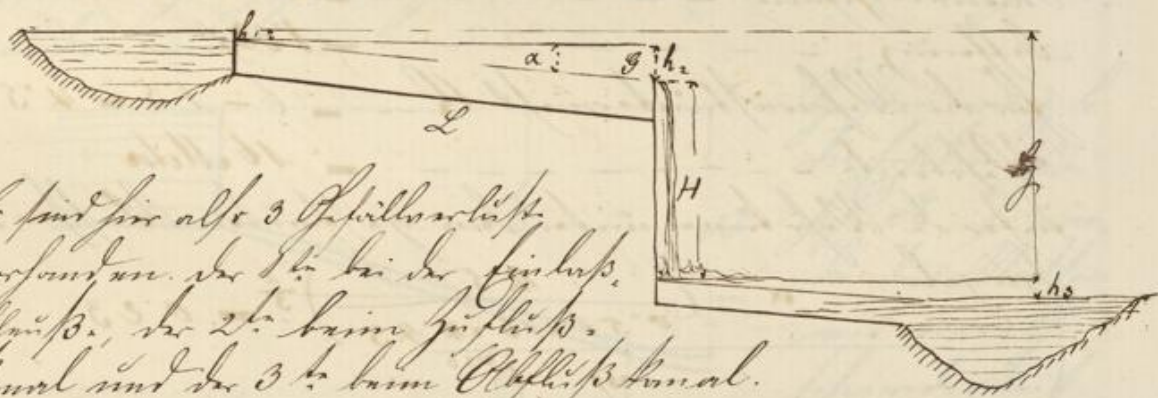 h₁
α
g h₂
L
H
h₃
sind hier also 3 Gefällverluste
vorhanden. Der 1te bei der Einlaß-
schleuße, der 2te beim Zufluß-
kanal und der 3te beim Abflußkanal.